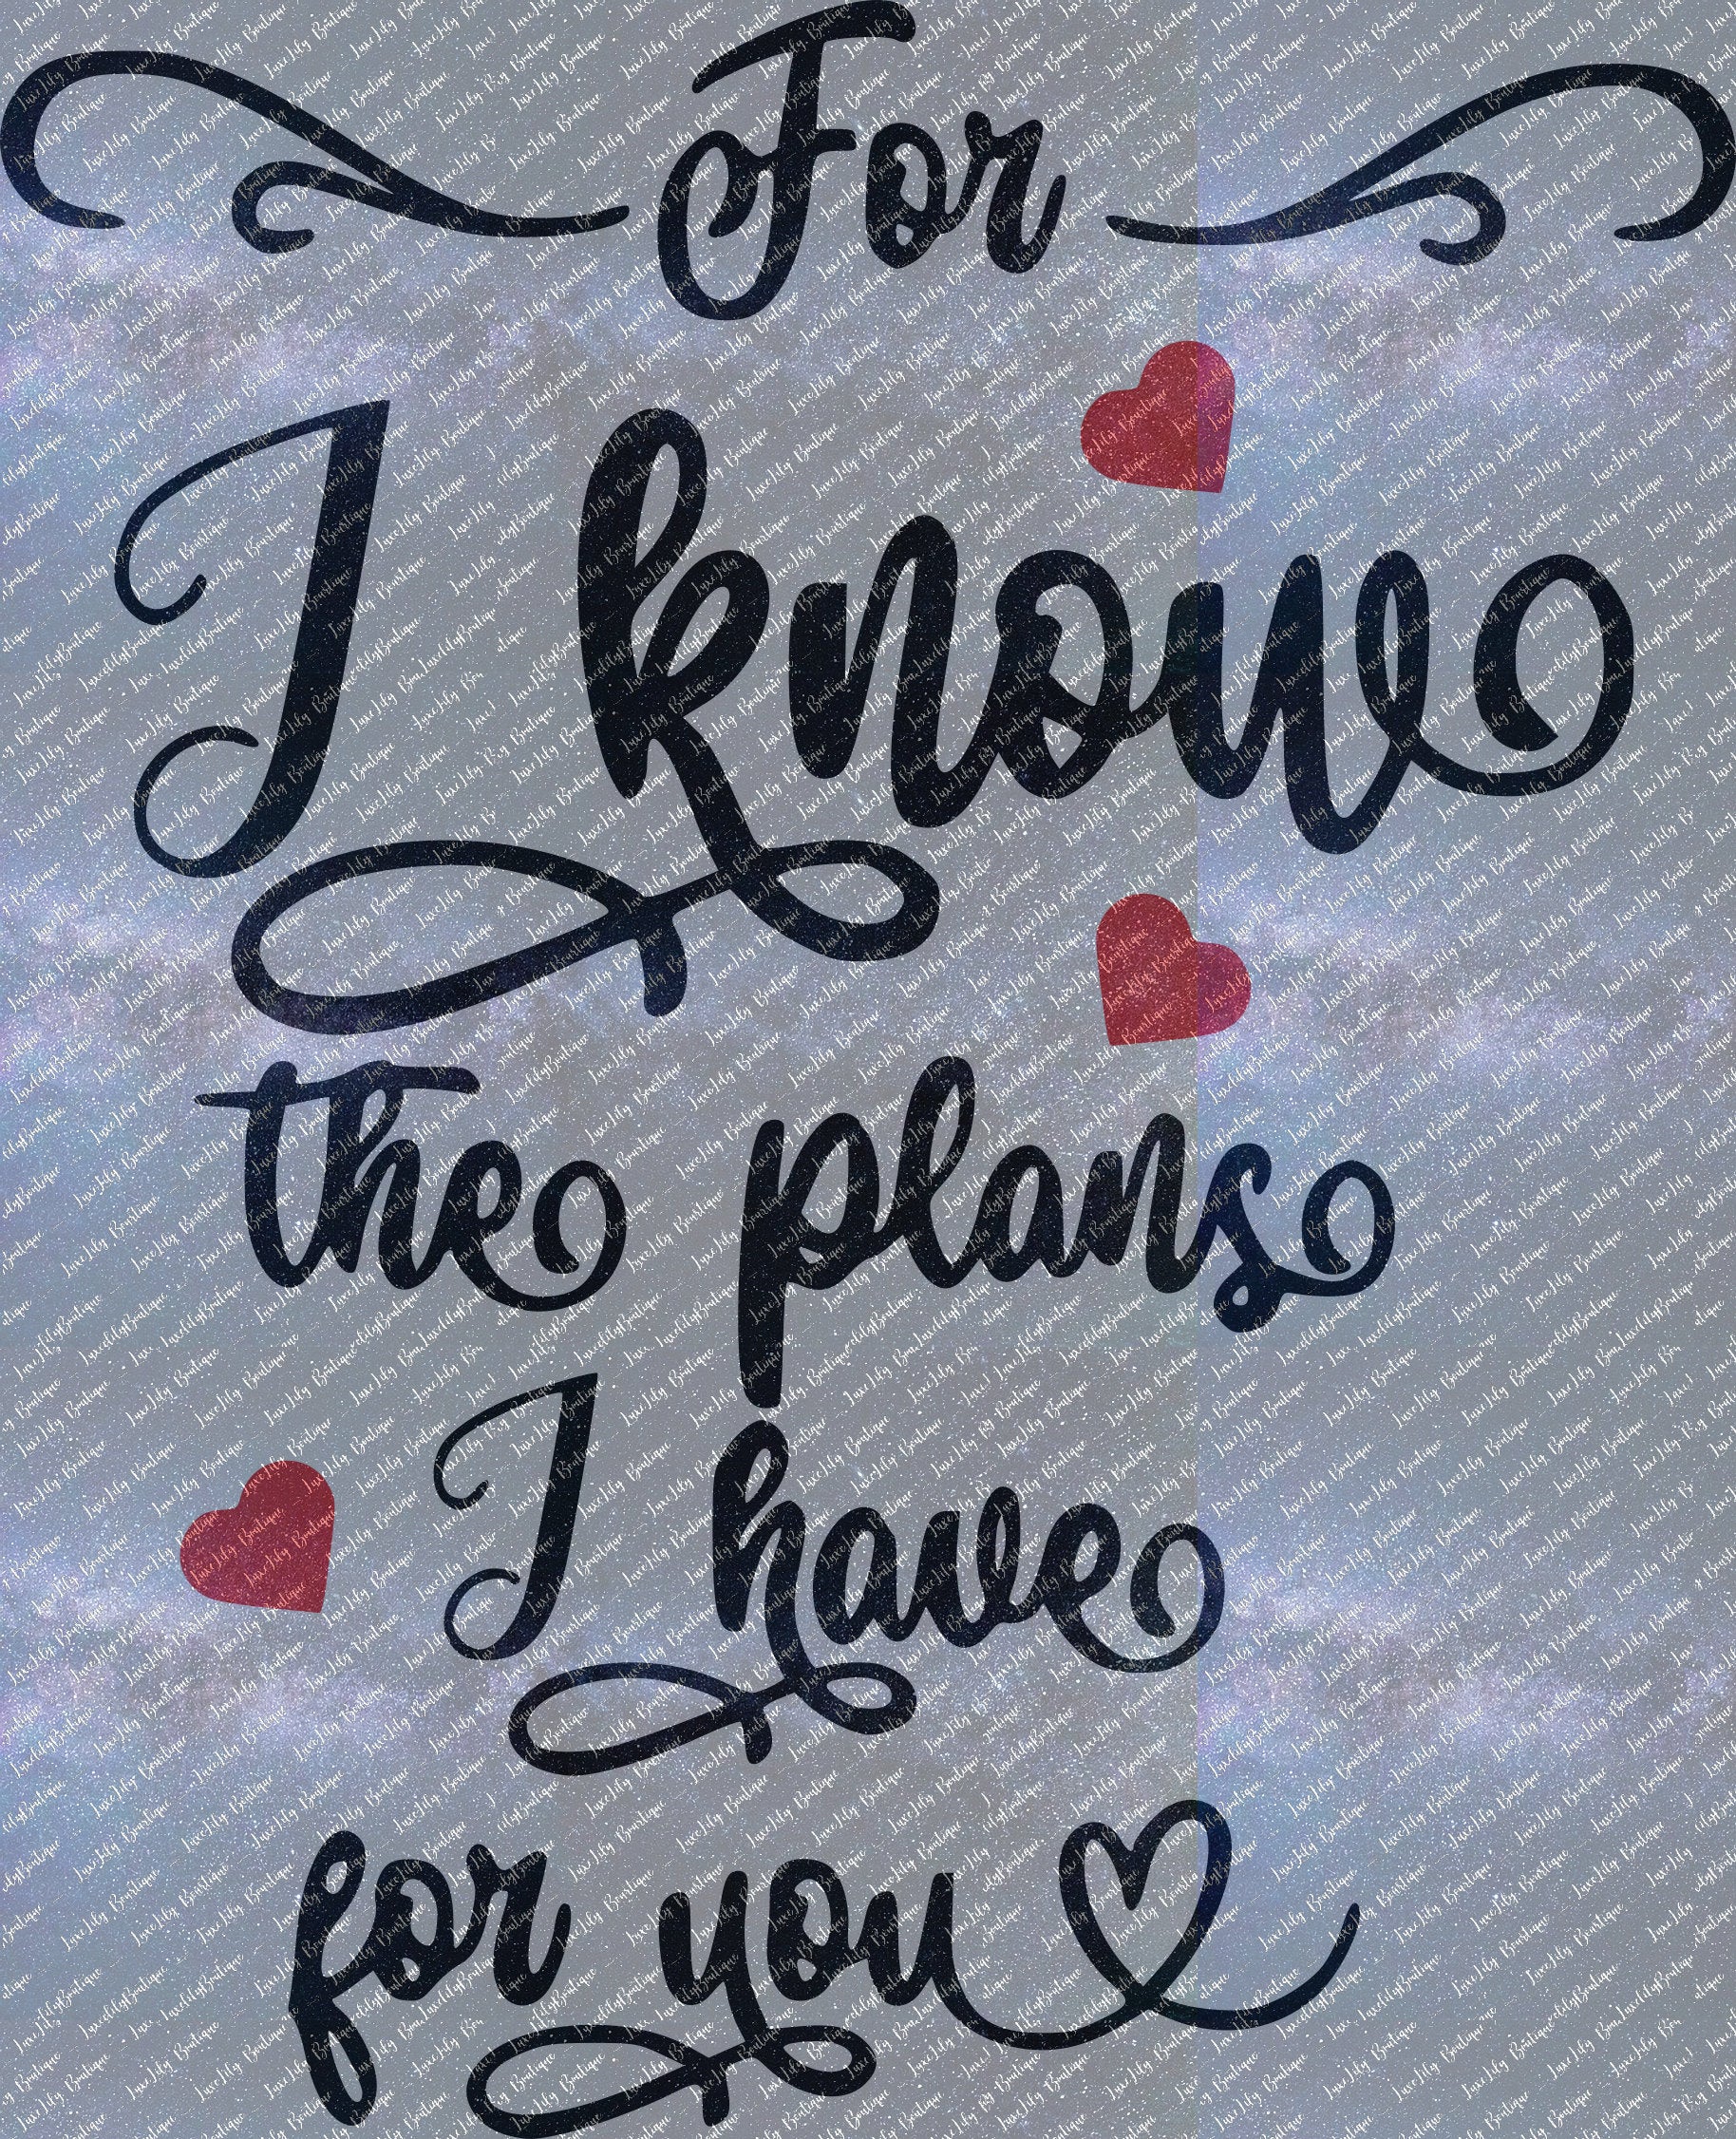 For
I know
the plans
I have
for you
LuxeLily Boutique